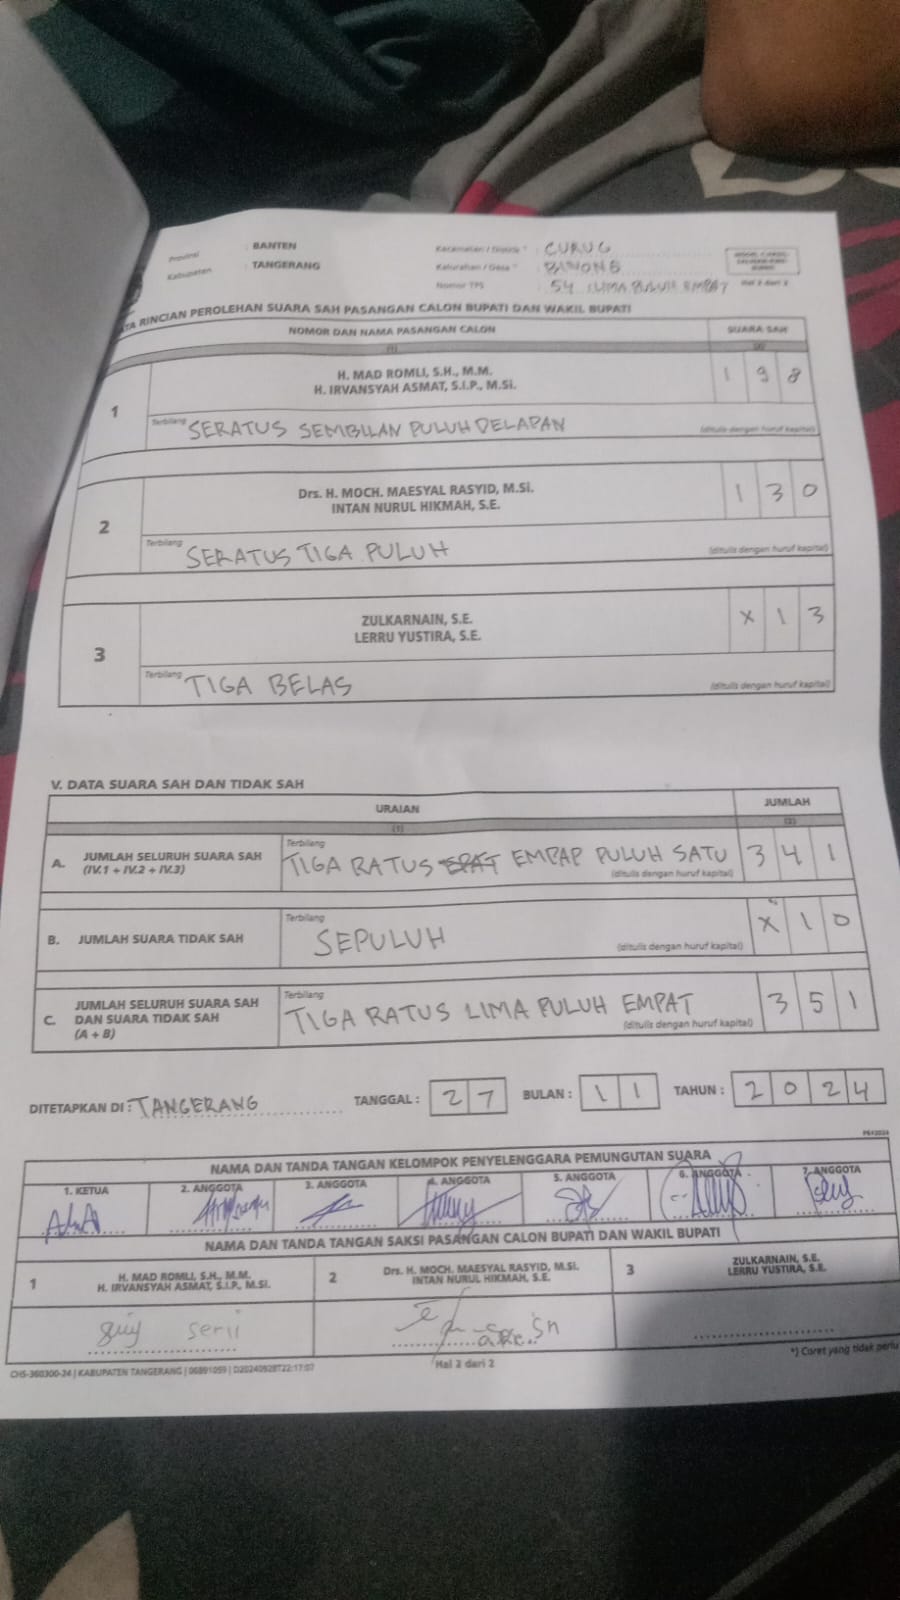 Provinsi : BANTEN Kecamatan / Distrik * : CURUG
Kabupaten : TANGERANG Kelurahan / Desa * : BINONG
Nomor TPS : 54 LIMA PULUH EMPAT Hal 2 dari 2
RINCIAN PEROLEHAN SUARA SAH PASANGAN CALON BUPATI DAN WAKIL BUPATI
NOMOR DAN NAMA PASANGAN CALON SUARA SAH
(1) (2)
1 H. MAD ROMLI, S.H., M.M. 1 9 8
H. IRVANSYAH ASMAT, S.I.P., M.Si.
Terbilang SERATUS SEMBILAN PULUH DELAPAN (ditulis dengan huruf kapital)
2 Drs. H. MOCH. MAESYAL RASYID, M.Si. 1 3 0
INTAN NURUL HIKMAH, S.E.
Terbilang SERATUS TIGA PULUH (ditulis dengan huruf kapital)
3 ZULKARNAIN, S.E. X 1 3
LERRU YUSTIRA, S.E.
Terbilang TIGA BELAS (ditulis dengan huruf kapital)
V. DATA SUARA SAH DAN TIDAK SAH
URAIAN JUMLAH
(1) (2)
A. JUMLAH SELURUH SUARA SAH
(IV.1 + IV.2 + IV.3)
Terbilang
TIGA RATUS EMPAP PULUH SATU 3 4 1
(ditulis dengan huruf kapital)
B. JUMLAH SUARA TIDAK SAH
Terbilang
SEPULUH X 1 0
(ditulis dengan huruf kapital)
C. JUMLAH SELURUH SUARA SAH
DAN SUARA TIDAK SAH
(A + B)
Terbilang
TIGA RATUS LIMA PULUH EMPAT 3 5 1
(ditulis dengan huruf kapital)
DITETAPKAN DI : TANGERANG TANGGAL : 2 7 BULAN : 1 1 TAHUN : 2 0 2 4
NAMA DAN TANDA TANGAN KELOMPOK PENYELENGGARA PEMUNGUTAN SUARA
1. KETUA 2. ANGGOTA 3. ANGGOTA 4. ANGGOTA 5. ANGGOTA 6. ANGGOTA 7. ANGGOTA
NAMA DAN TANDA TANGAN SAKSI PASANGAN CALON BUPATI DAN WAKIL BUPATI
1 H. MAD ROMLI, S.H., M.M. 2 Drs. H. MOCH. MAESYAL RASYID, M.Si. 3 ZULKARNAIN, S.E.
H. IRVANSYAH ASMAT, S.I.P., M.Si. INTAN NURUL HIKMAH, S.E. LERRU YUSTIRA, S.E.
*) Coret yang tidak perlu
Hal 2 dari 2
CHS-360300-24 | KABUPATEN TANGERANG | 06891059 | D20240928T22:17:07